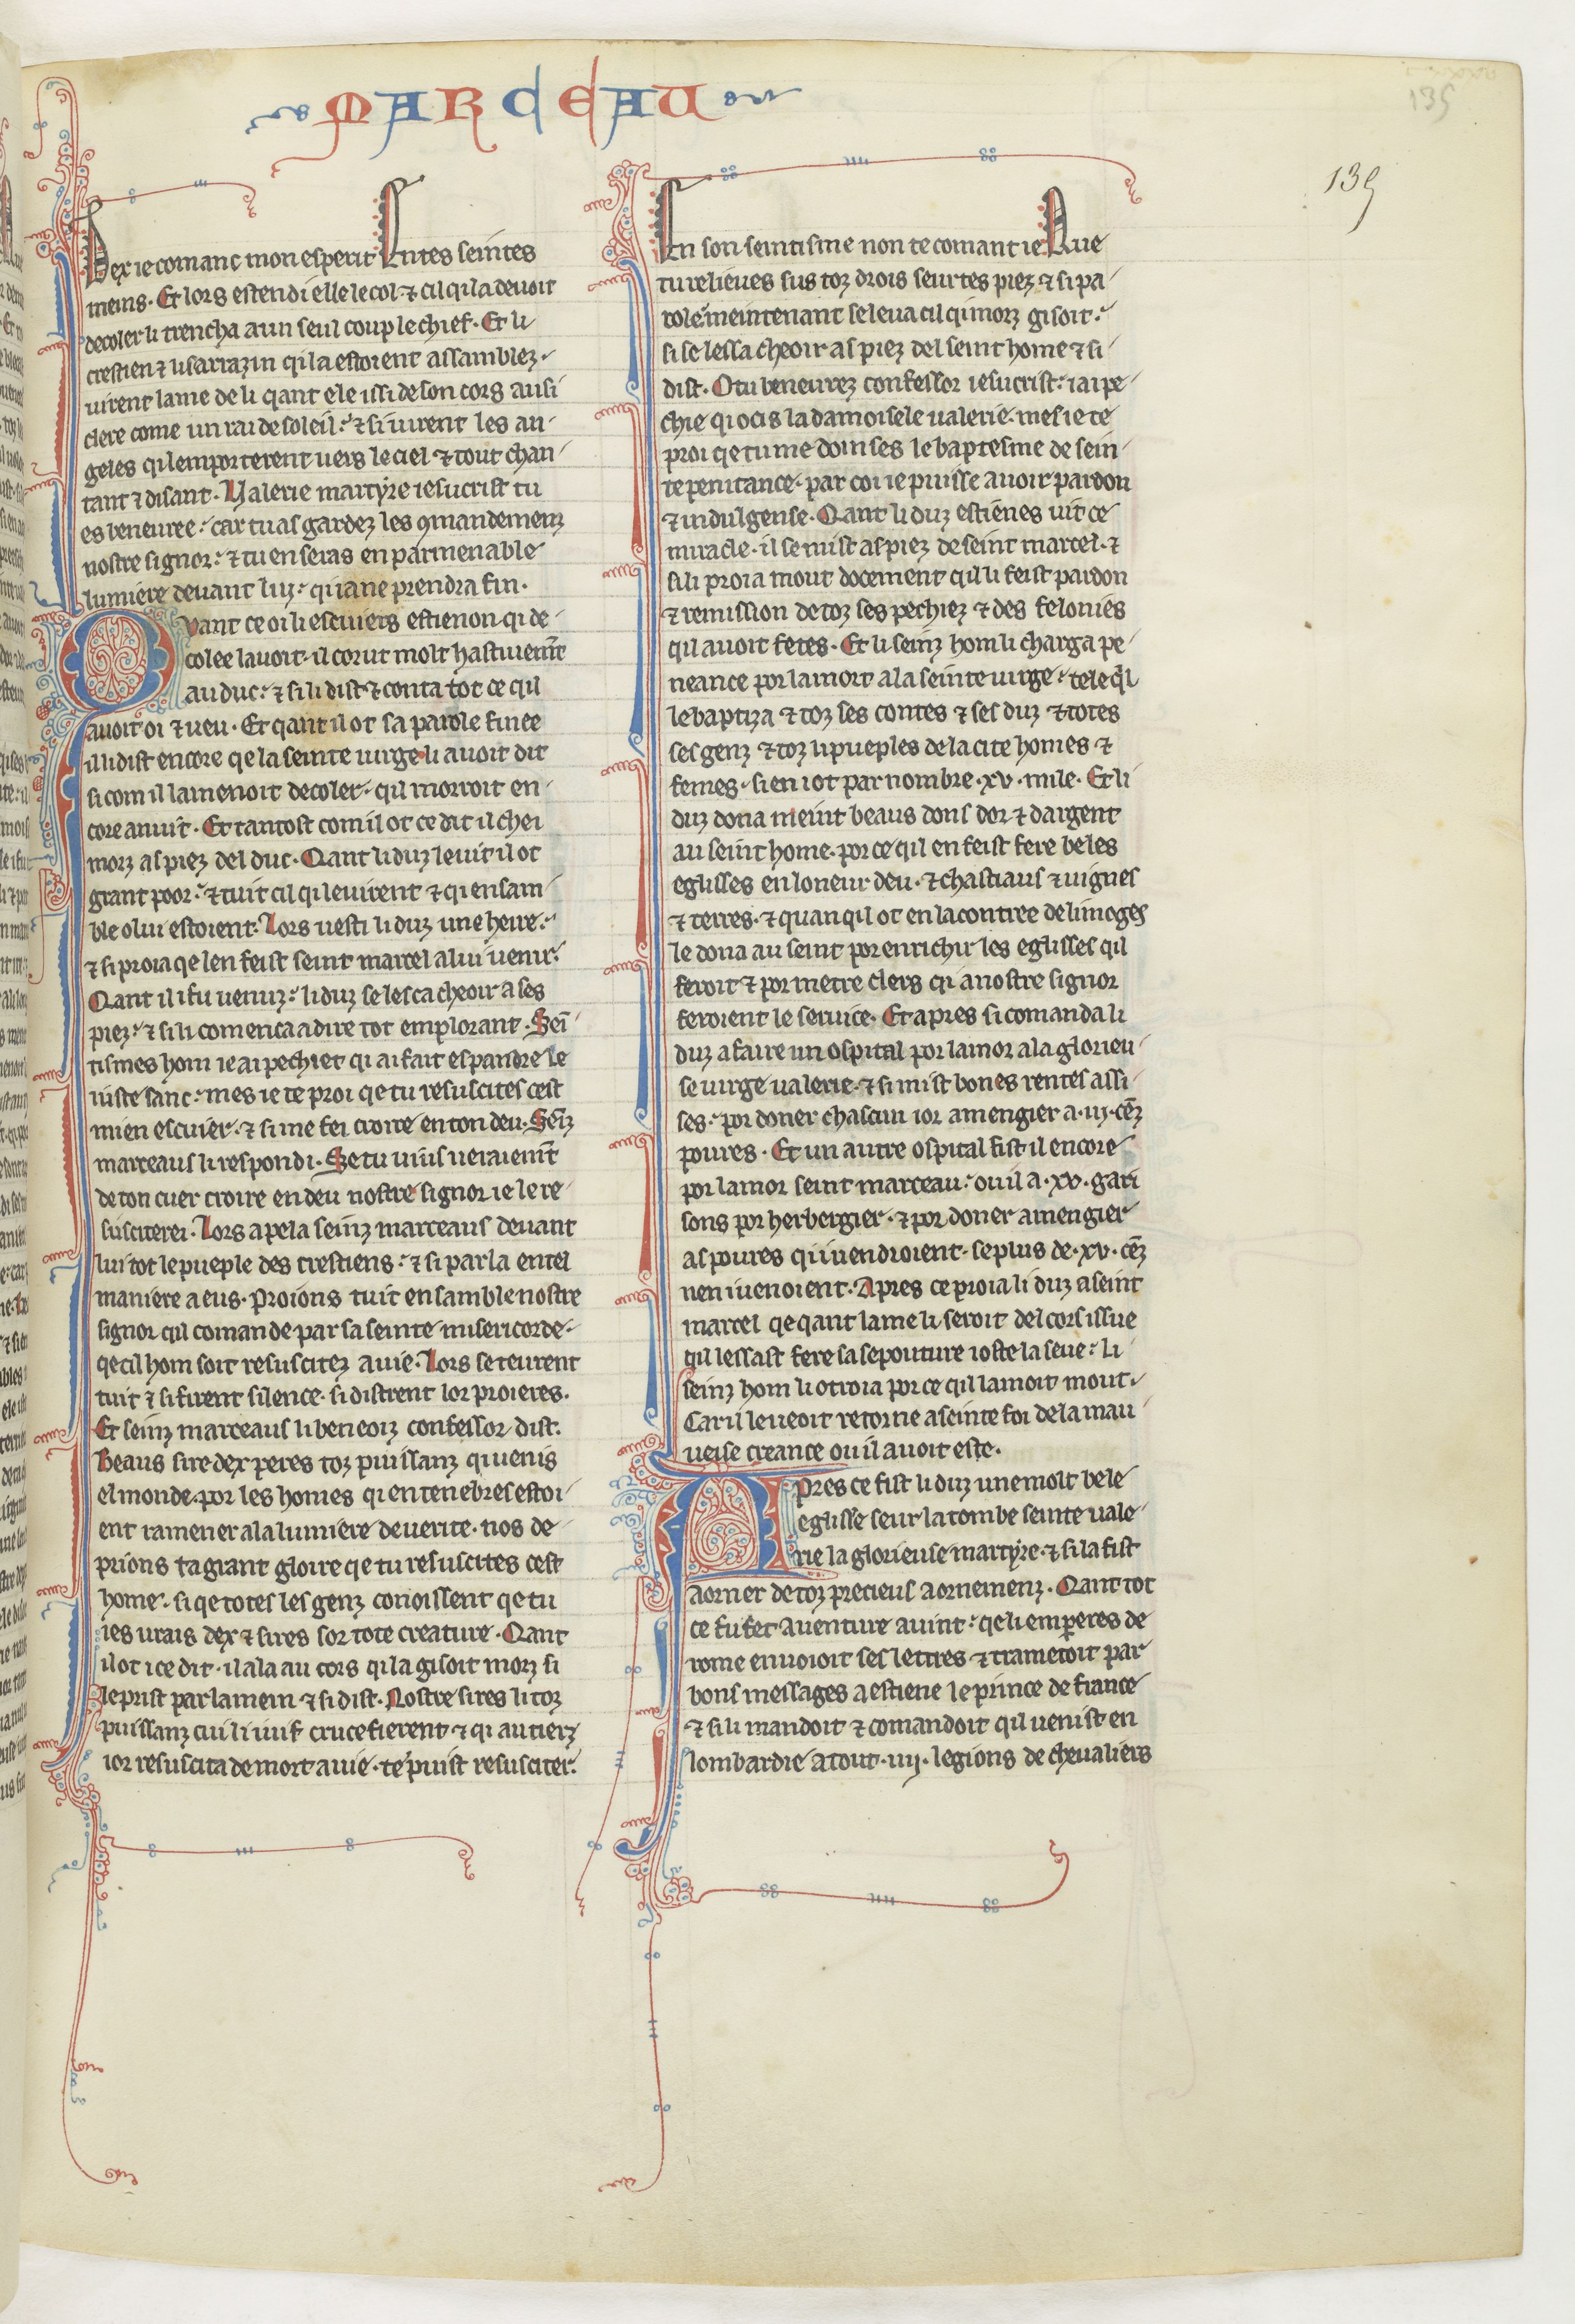 MARCEAU
135
135
Dex ie comanc mon esperit En tes seintes
meins. Et lors estendi elle le col ⁊ cil qi la deuoit
decoler li trencha a un seul coup le chief. Et li
crestien ⁊ li sarrazin qi la estoient assamblez.
uirent lame de li qant ele issi de son cors ausi
clere come un rai de soleil. ⁊ si uirent les an
geles qi lemporterent uers le ciel ⁊ tout chan
tant ⁊ disant. Ualerie martyre iesucrist tu
es beneuree. car tu as gardez les ꝯmandemenz
nostre signor. ⁊ tu en seras en parmenable
lumiere deuant lui. qi ia ne prendra fin.
Quant ce oi li escuiers estienon qi de
colee lauoit. il corut molt hastiuem̄t
au duc. ⁊ si li dist ⁊ conta tot ce qil
auoit oi ⁊ ueu. Et qant il ot sa parole finee
il li dist encore qe la seinte uirge li auoit dit
si com il lamenoit decoler. qil morroit en
core anuit. Et tantost com il ot ce dit il chei
morz as piez del duc. Qant li duz le uit il ot
grant poor. ⁊ tuit cil qi le uirent ⁊ qi ensam
ble o lui estoient. Lors uesti li duz une heire.
⁊ si proia qe len feist seint marcel a lui uenir.
Qant il i fu uenuz. li duz se lesca cheoir a ses
piez. ⁊ si li comenca a dire tot emplorant. Sei
tismes hom ie ai pechiet qi ai fait espandre le
iuste sanc. mes ie te proi qe tu resuscites cest
mien escuier. ⁊ si me fei croire en ton deu. Seīz
marceaus li respondi. Se tu uiuis ueraiem̄t
de ton cuer croire en deu nostre signor ie le re
susciterei. Lors apela seinz marceaus deuant
lui tot le pueple des crestiens. ⁊ si parla en tel
maniere a eus. Proions tuit ensamble nostre
signor qil comande par sa seinte misericorde.
qe cil hom soit resuscitez a uie. Lors se teurent
tuit ⁊ si firent silence. si distrent lor proieres.
Et seinz marceaus li beneoiz confessor dist.
Beaus sire dex peres toz puissanz qi uenis
el monde. por les homes qi en tenebres estoi
ent ramener a la lumiere de uerite. nos de
prions ta grant gloire qe tu resuscites cest
home. si qe totes les genz conoissent qe tu
ies urais dex ⁊ sires sor tote creature. Qant
il ot ice dit. il ala au cors qi la gisoit morz si
le prist par la mein ⁊ si dist. Nostre sires li toz
puissanz cui li iuif crucefierent ⁊ qi au tierz
ior resuscita de mort a uie. te puist resusciter.
En son seintisme non te comant ie Que
tu relieues sus toz drois seur tes piez ⁊ si pa
role. meintenant se leua cil qi morz gisoit.
si se lessa cheoir as piez del seint home ⁊ si
dist. O tu beneurez confessor iesucrist. iai pe
chie qi ocis la damoisele ualerie. mes ie te
proi qe tu me doinses le baptesme de sein
te penitance. par coi ie puisse auoir pardon
⁊ indulgense. Qant li duz estienes uit ce
miracle. il se mist as piez de seint marcel. ⁊
si li proia mout docement qil li feist pardon
⁊ remission de toz ses pechiez ⁊ des felonies
qil auoit fetes. Et li seinz hom li charga pe
neance por lamor a la seinte uirge. tele q̄l
le baptiza ⁊ toz ses contes ⁊ ses duz ⁊ totes
ses genz ⁊ toz li pueples de la cite homes ⁊
femes. si en i ot par nombre .xv. mile. Et li
duz dona meint beaus dons dor ⁊ dargent
au seint home. por ce qil en feist fere beles
eglisses en loneur deu. ⁊ chastiaus ⁊ uignes
⁊ terres. ⁊ quanqil ot en la contree de limoges
le dona au seint por enrichir les eglisses qil
feroit ⁊ por metre clers qi a nostre signor
feroient le seruice. Et apres si comanda li
duz a faire un ospital por lamor a la glorieu
se uirge ualerie. ⁊ si mist bones rentes assi
ses. por doner chascun ior a mengier a .iij. cēz
poures. Et un autre ospital fist il encore
por lamor seint marceau. ou il a .xv. gari
sons por herbergier. ⁊ por doner a mengier
as poures qi i uendroient. se plus de .xv. cēz
nen i uenoient. Apres ce proia li duz a seint
marcel qe qant lame li seroit del cors issue
qil lessast fere sa sepouture ioste la seue. Li
seinz hom li otroia por ce qil lamoit mout.
Car il le ueoit retorne a seinte foi de la mau
ueise creance ou il auoit este.
Apres ce fist li duz une molt bele
eglisse seur la tombe seinte uale
rie la glorieuse martyre. ⁊ si la fist
aorner de toz precieus aornemenz. Qant tot
ce fu fet auenture auint. qe li emperes de
rome enuoioit ses lettres ⁊ trametoit par
bons messages a estiene le prince de france
⁊ si li mandoit ⁊ comandoit qil uenist en
lombardie a tout .iiij. legions de cheualiers